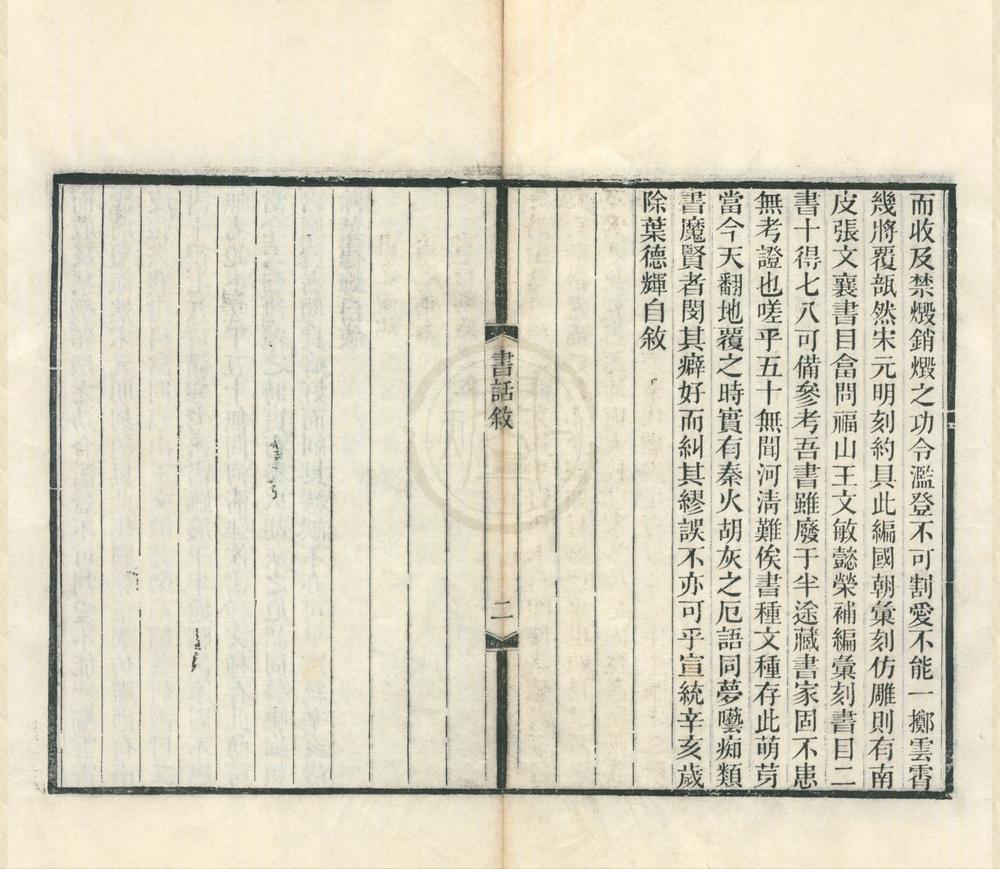 而收及禁燬銷燬之功令濫登不可割愛不能一擲雲霄
幾將覆瓿然宋元明刻約具此編國朝彙刻仿雕則有南
皮張文襄書目畣問福山王文敏懿榮補編彙刻書目二
書十得七八可備參考吾書雖廢于半途藏書家固不患
無考證也嗟乎五十無聞河淸難俟書種文種存此萌芽
當今天翻地覆之時實有秦火胡灰之厄語同夢囈痴類
書魔賢者閔其癖好而糾其繆誤不亦可乎宣統辛亥歲
除葉德輝自敘
書話敘
二